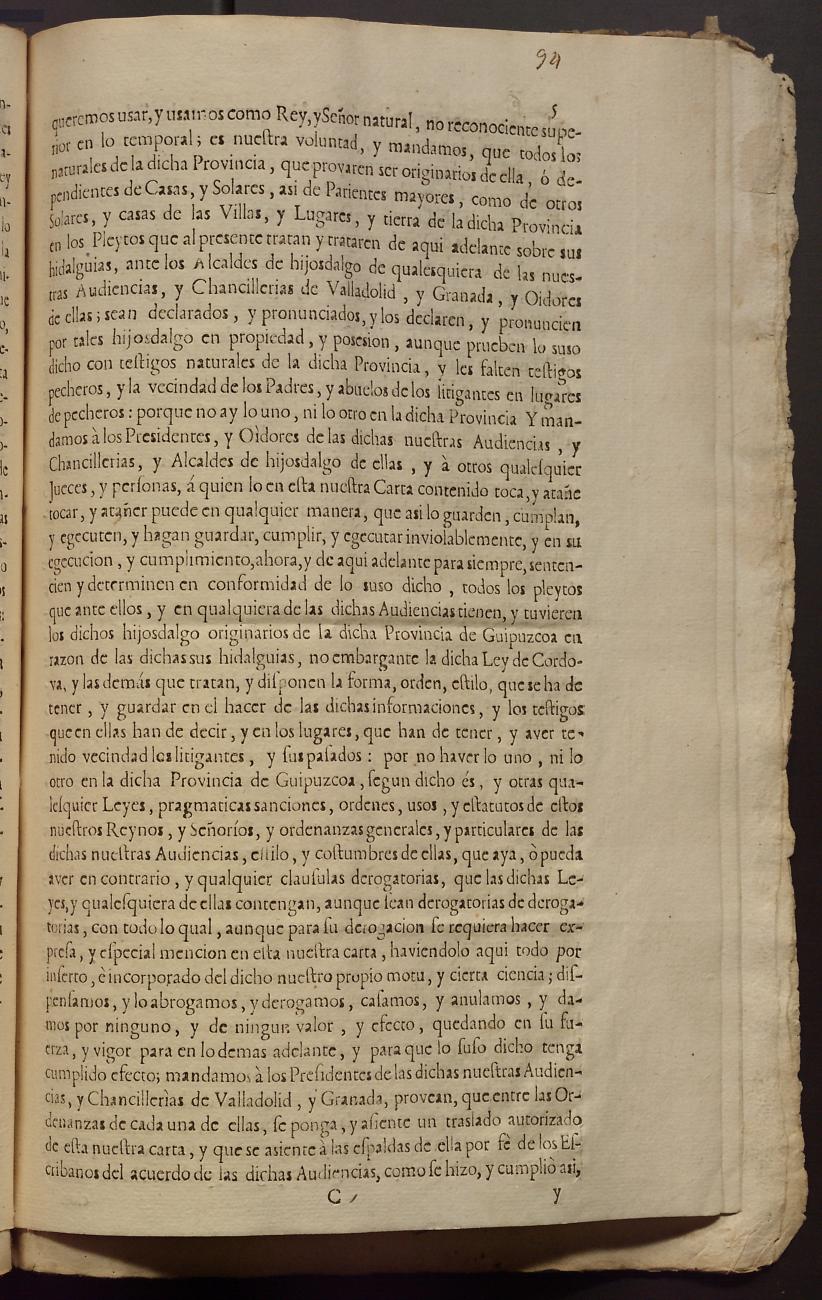 94
5
queremos usar, y usamos como Rey, y Señor natural, no reconociente supe-
rior en lo temporal; es nueſtra voluntad, y mandamos, que todos los
naturales de la dicha Provincia, que provaren ser originarios de ella, ó de-
pendientes de Casas, y Solares, asi de Parientes mayores, como de otros
Solares, y casas de las Villas, y Lugares, y tierra de la dicha Provincia
en los Pleytos que al presente tratan y trataren de aqui adelante sobre sus
hidalguias, ante los Alcaldes de hijosdalgo de qualesquiera de las nues-
tras Audiencias, y Chancillerias de Valladolid, y Granada, y Oidores
de ellas; sean declarados, y pronunciados, y los declaren, y pronuncien
por tales hijosdalgo en propiedad, y posesion, aunque prueben lo suso
dicho con teſtigos naturales de la dicha Provincia, y les falten teſtigos
pecheros, y la vecindad de los Padres, y abuelos de los litigantes en lugares
de pecheros: porque no ay lo uno, ni lo otro en la dicha Provincia Y man-
damos à los Presidentes, y Oidores de las dichas nueſtras Audiencias, y
Chancillerias, y Alcaldes de hijosdalgo de ellas, y à otros qualeſquier
Jueces, y perſonas, á quien lo en eſta nueſtra Carta contenido toca, y atañe
tocar, y atañer puede en qualquier manera, que asi lo guarden, cumplan,
y egecuten, y hagan guardar, cumplir, y egecutar inviolablemente, y en su
egecucion, y cumplimiento, ahora, y de aqui adelante para siempre, senten-
cien y determinen en conformidad de lo suso dicho, todos los pleytos
que ante ellos, y en qualquiera de las dichas Audiencias tienen, y tuvieren
los dichos hijosdalgo originarios de la dicha Provincia de Guipuzcoa en
razon de las dichas sus hidalguias, no embargante la dicha Ley de Cordo-
va, y las demás que tratan, y diſponen la forma, orden, eſtilo, que se ha de
tener, y guardar en el hacer de las dichas informaciones, y los teſtigos
que en ellas han de decir, y en los lugares, que han de tener, y aver te-
nido vecindad los litigantes, y ſus paſados: por no haver lo uno, ni lo
otro en la dicha Provincia de Guipuzcoa, ſegun dicho és, y otras qua-
leſquier Leyes, pragmaticas sanciones, ordenes, usos, y eſtatutos de eſtos
nueſtros Reynos, y Señoríos, y ordenanzas generales, y particulares de las
dichas nueſtras Audiencias, eſtilo, y coſtumbres de ellas, que aya, ò pueda
aver en contrario, y qualquier clauſulas derogatorias, que las dichas Le-
yes, y qualeſquiera de ellas contengan, aunque ſean derogatorias de deroga-
torias, con todo lo qual, aunque para ſu derogacion ſe requiera hacer ex-
preſa, y eſpecial mencion en eſta nueſtra carta, haviendolo aqui todo por
inſerto, è incorporado del dicho nueſtro propio motu, y cierta ciencia; diſ-
penſamos, y lo abrogamos, y derogamos, caſamos, y anulamos, y da-
mos por ninguno, y de ningun valor, y efecto, quedando en ſu fu-
erza, y vigor para en lo demas adelante, y para que lo ſuſo dicho tenga
cumplido efecto; mandamos à los Preſidentes de las dichas nueſtras Audien-
cias, y Chancillerìas de Valladolid, y Granada, provean, que entre las Or-
denanzas de cada una de ellas, ſe ponga, y aſiente un traslado autorizado
de eſta nueſtra carta, y que se asiente à las eſpaldas de ella por fè de los Eſ-
cribanos del acuerdo de las dichas Audiencias, como ſe hizo, y cumpliò asi,
C
y